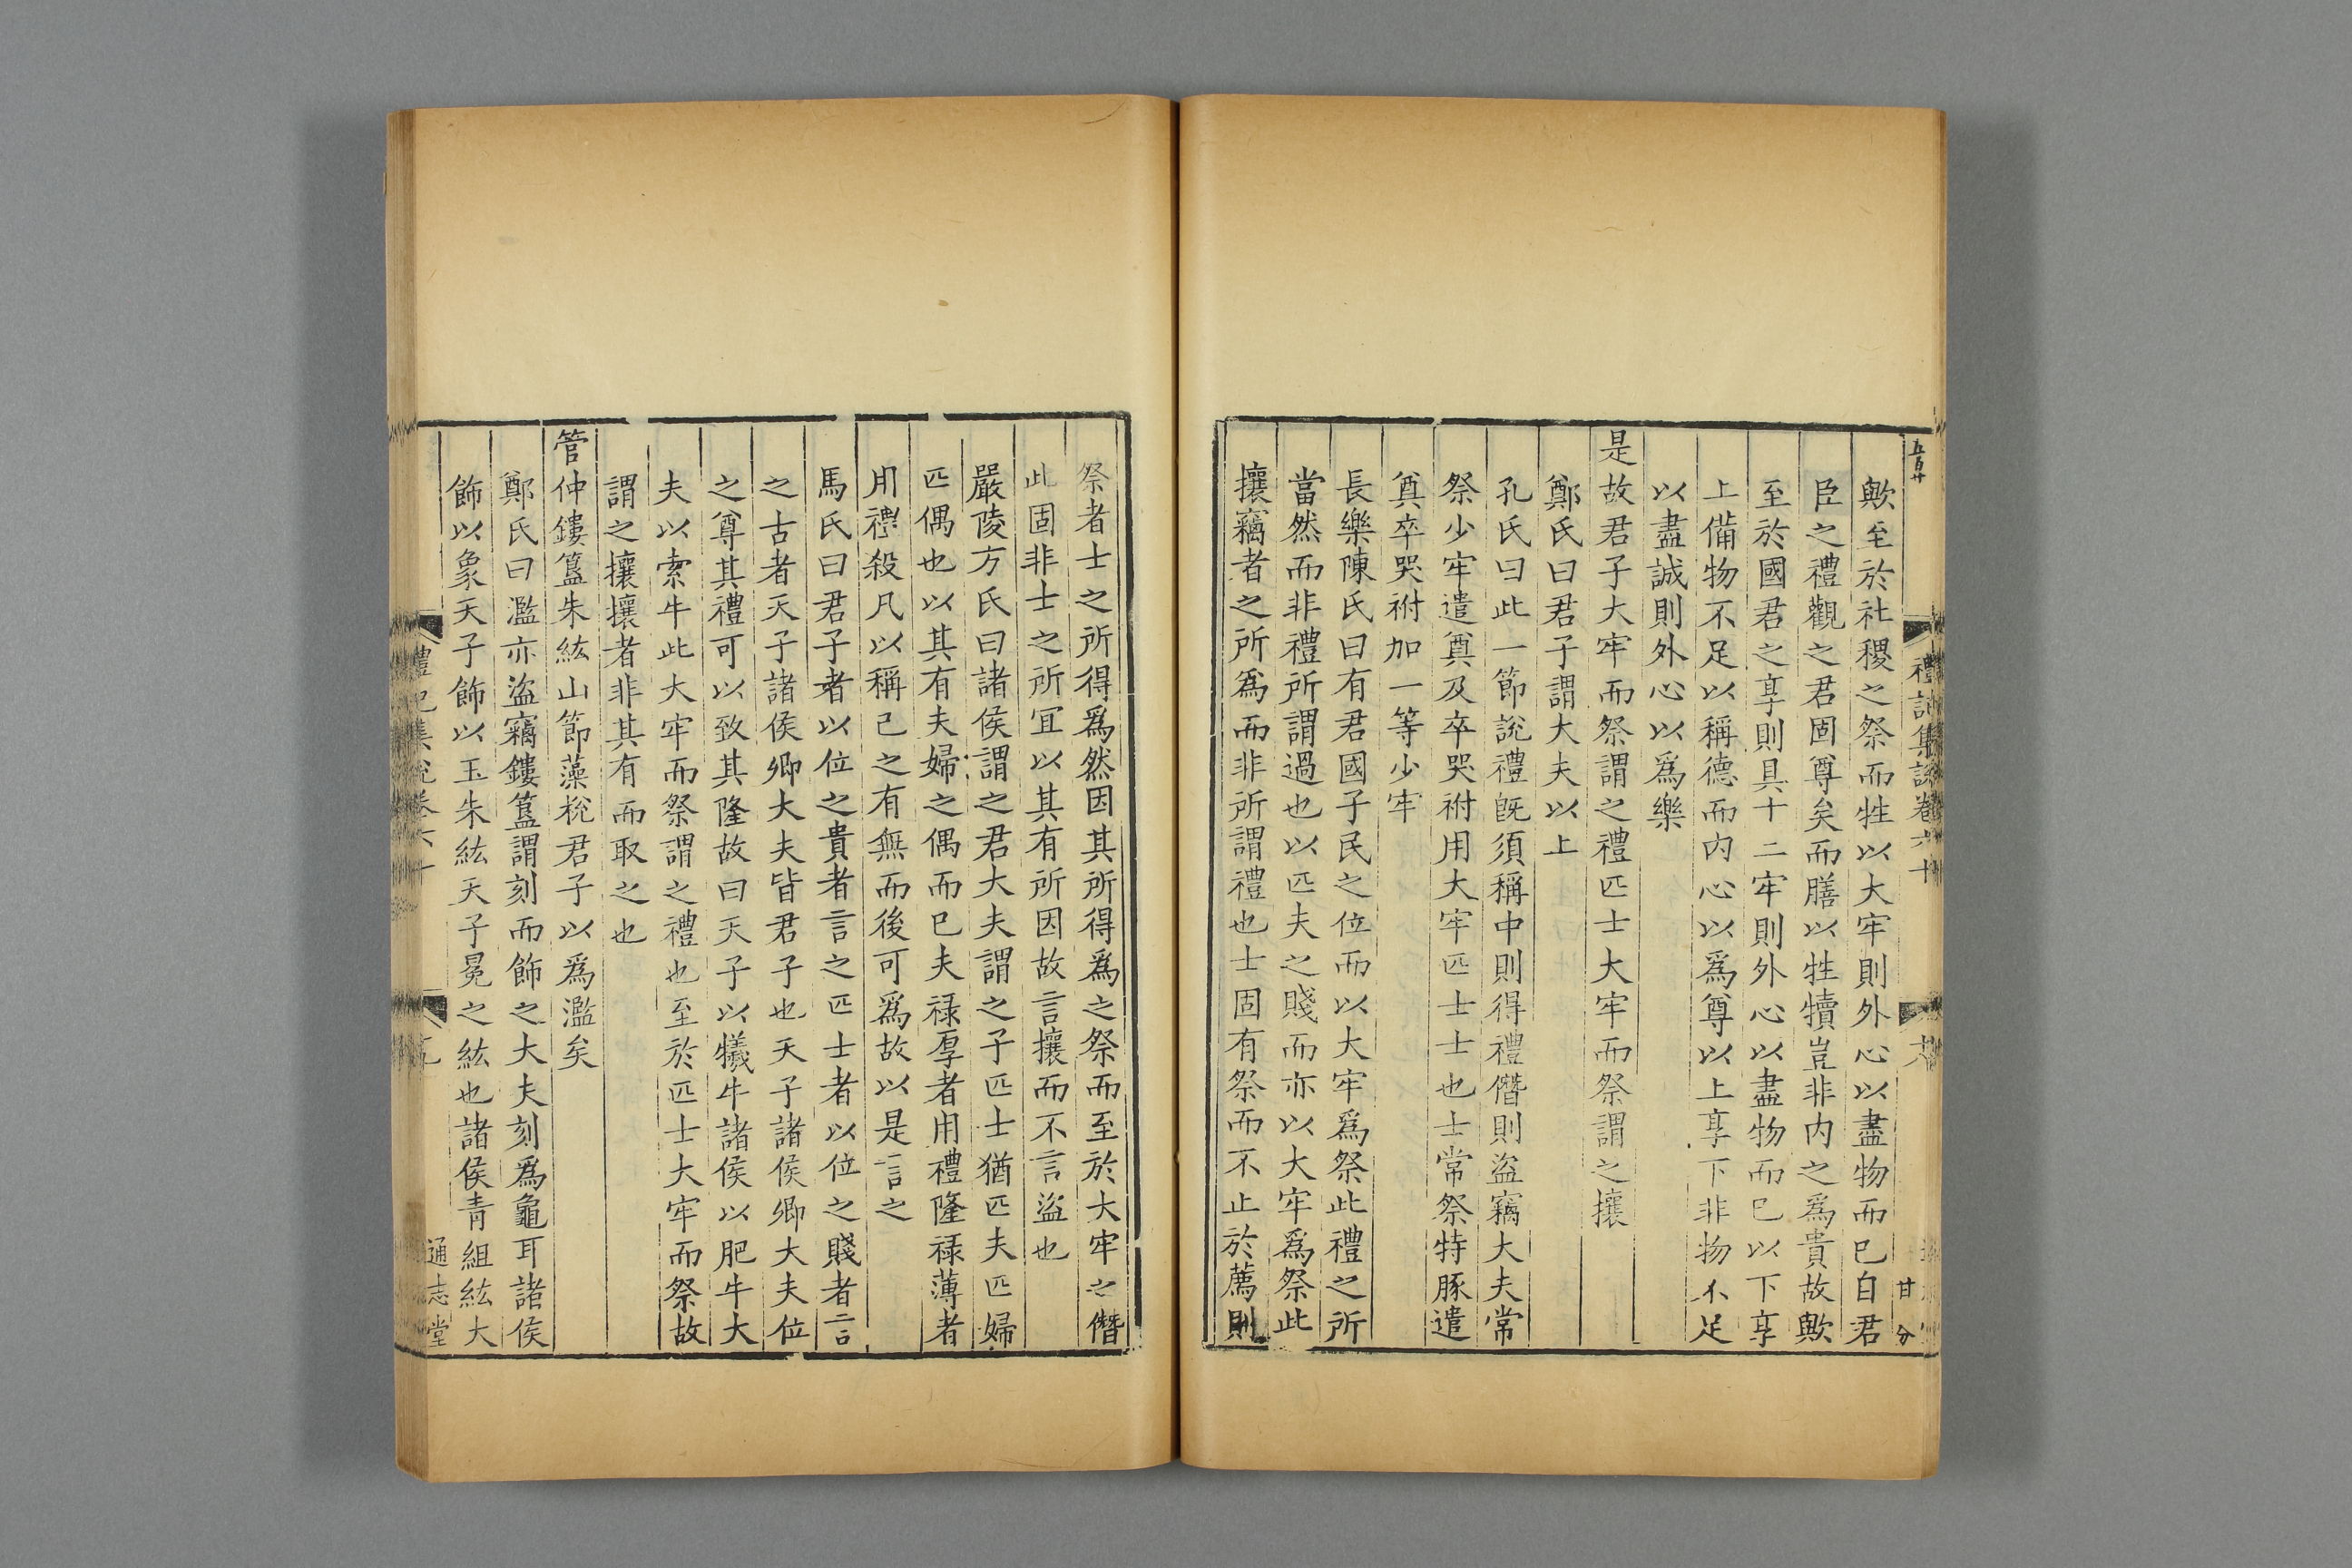 歟至於社稷之祭而牲以大牢則外心以盡物而已自君
臣之禮觀之君固尊矣而膳以牲犢豈非内之爲貴故歟
至於國君之享則具十二牢則外心以盡物而已以下享
上備物不足以稱德而内心以爲尊以上享下非物不足
以盡誠則外心以爲樂
是故君子大牢而祭謂之禮匹士大牢而祭謂之攘
鄭氏曰君子謂大夫以上
孔氏曰此一節説禮旣須稱中則得禮僭則盜竊大夫常
祭少牢遣奠及卒哭祔用大牢匹士士也士常祭特豚遣
奠卒哭祔加一等少牢
長樂陳氏曰有君國子民之位而以大牢爲祭此禮之所
當然而非禮所謂過也以匹夫之賤而亦以大牢爲祭此
攘竊者之所爲而非所謂禮也士固有祭而不止於薦則
祭者士之所得爲然因其所得爲之祭而至於大牢之僭
此固非士之所冝以其有所因故言攘而不言盜也
嚴陵方氏曰諸侯謂之君大夫謂之子匹士猶匹夫匹婦
匹偶也以其有夫婦之偶而已夫禄厚者用禮隆禄薄者
用禮殺凡以稱己之有無而後可爲故以是言之
馬氏曰君子者以位之貴者言之匹士者以位之賤者言
之古者天子諸侯卿大夫皆君子也天子諸侯卿大夫位
之尊其禮可以致其隆故曰天子以犧牛諸侯以肥牛大
夫以索牛此大牢而祭謂之禮也至於匹士大牢而祭故
謂之攘攘者非其有而取之也
管仲鏤簋朱紘山節藻梲君子以爲濫矣
鄭氏曰濫亦盜竊鏤簋謂刻而飾之大夫刻爲龜耳諸侯
飾以象天子飾以玉朱紘天子冕之紘也諸侯青組紘大
禮記集說卷六十
通志堂